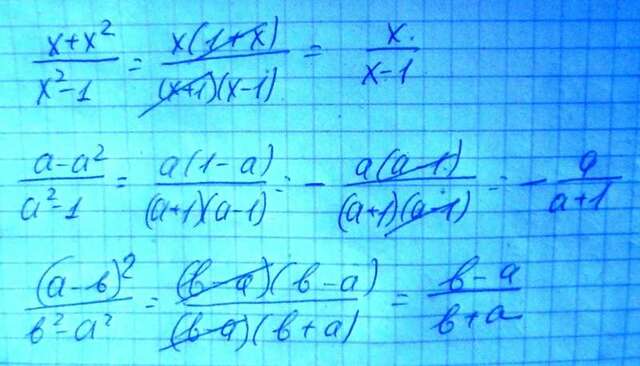 (x+x²)/(x²-1) = (x(1+x))/((x+1)(x-1)) = x/(x-1)
(a-a²)/(a²-1) = (a(1-a))/((a+1)(a-1)) = - (a(a-1))/((a+1)(a-1)) = - a/(a+1)
(a-в)²/(в²-a²) = ((в-a)(в-a))/((в-a)(в+a)) = (в-a)/(в+a)